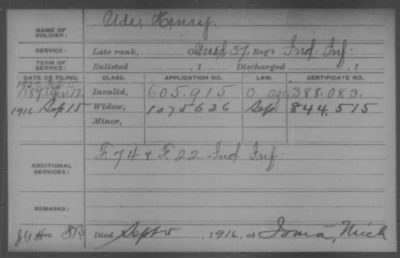 NAME OF SOLDIER: Udes Henry.
SERVICE: Late rank, 37, Reg't Ind Inf.
TERM OF SERVICE: Enlisted , 1 Discharged , 1
DATE OF FILING. CLASS. APPLICATION NO. LAW. CERTIFICATE NO.
1887 12 Invalid, 605.915 388.083.
1916 Sep 15 Widow, 1075626 Sep 844.515
Minor,
ADDITIONAL SERVICES: F. 74 & F. 22 Ind Inf.
REMARKS:
Died Sept 5, 1916, at Ionia, Mich